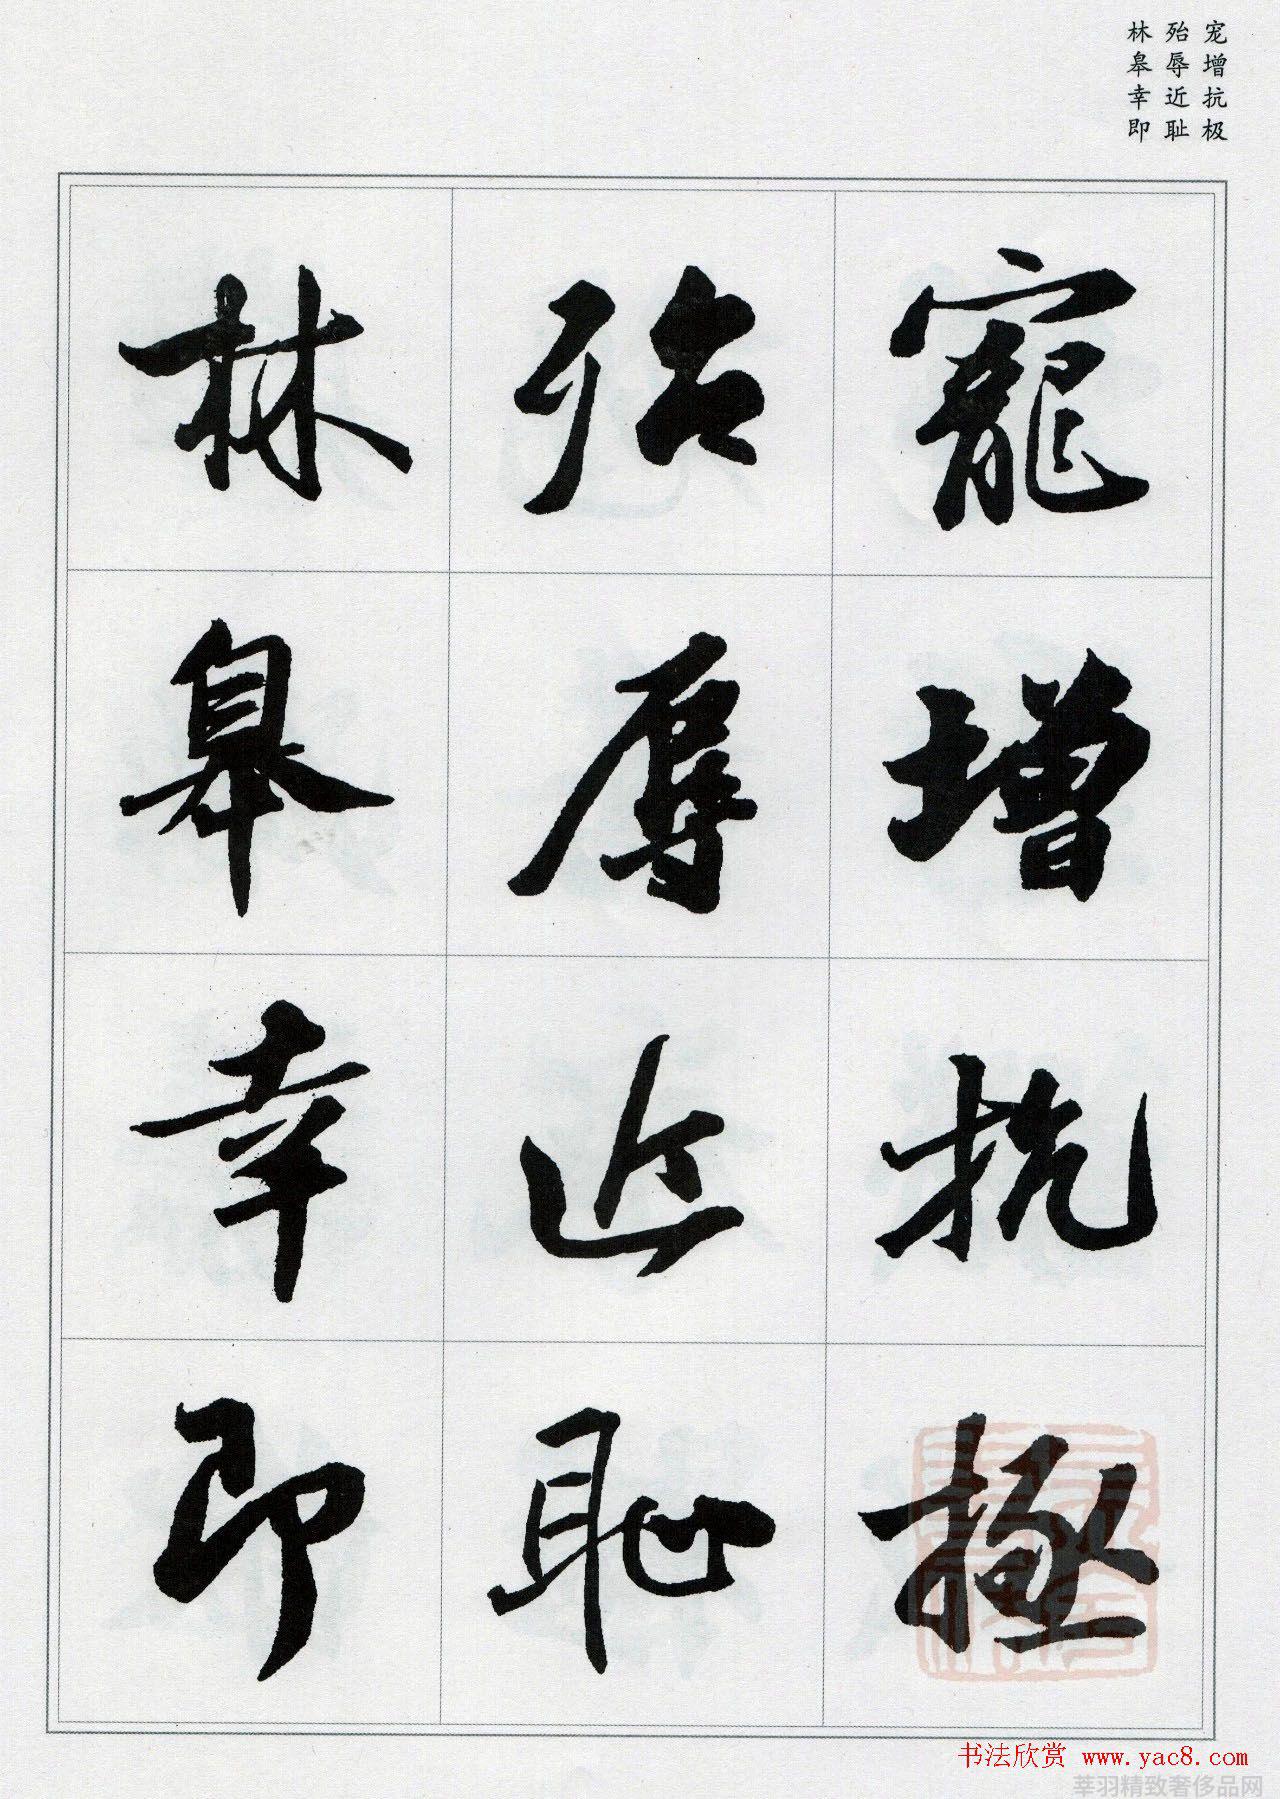 宠增抗极
殆辱近耻
林皋幸即
寵增抗極
殆辱近恥
林皋幸即
书法欣赏 www.yac8.com
莘羽精致奢侈品网